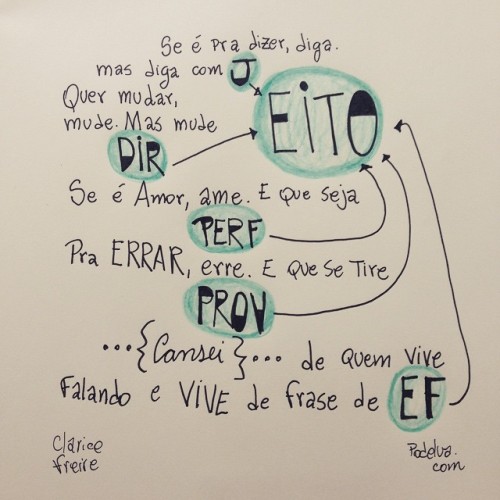 Se é pra dizer, diga.
mas diga com J
EITO
Quer mudar,
mude. Mas mude
DIR
Se é Amor, ame. E que seja
PERF
Pra ERRAR, erre. E que se tire
PROV
...{Cansei}... de quem vive
falando e VIVE de frase de EF
Clarice
freire
Podelua.
com